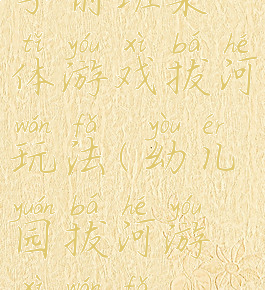 学前班集
tǐ yóu xì bá hé
体游戏拔河
wán fǎ yòu ér
玩法(幼儿
yuán bá hé yóu
园拔河游
xì wán fǎ